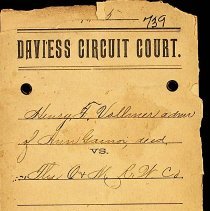 739
DAVIESS CIRCUIT COURT.
Henry F. Vollmer admr
of Ann Cainor decd
VS.
The O & M R W Co